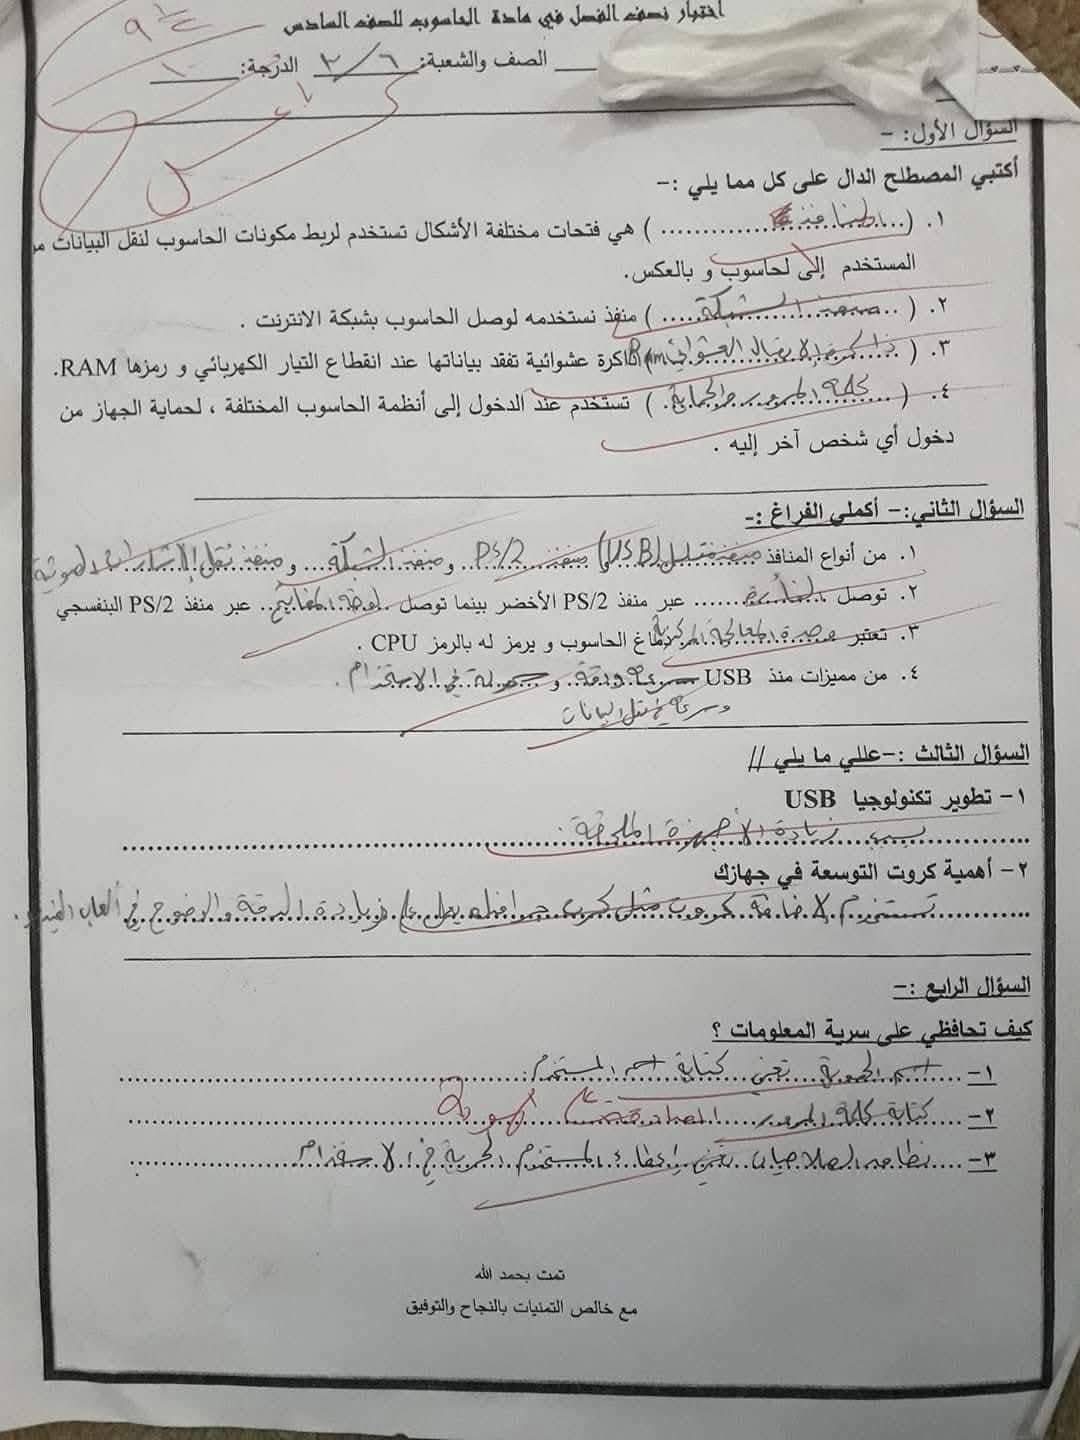 اختبار نصف الفصل في مادة الحاسوب للصف السادس
٩ ١/٢
الصف والشعبة: ٦/٢ الدرجة: ١٠
السؤال الأول: -
أكتبي المصطلح الدال على كل مما يلي :-
١. (المنافذ) هي فتحات مختلفة الأشكال تستخدم لربط مكونات الحاسوب لنقل البيانات من
المستخدم إلى لحاسوب و بالعكس.
٢. (منفذ الشبكة) منفذ نستخدمه لوصل الحاسوب بشبكة الانترنت .
٣. (ذاكرة الايصال العشوائي Ram) ذاكرة عشوائية تفقد بياناتها عند انقطاع التيار الكهربائي و رمزها RAM.
٤. (كلمة المرور والحماية) تستخدم عند الدخول إلى أنظمة الحاسوب المختلفة ، لحماية الجهاز من
دخول أي شخص آخر إليه .
السؤال الثاني:- أكملي الفراغ :-
١. من أنواع المنافذ منفذ (USB) و منفذ PS/2 و منفذ الشبكة و منفذ نقل الإشارات الصوتية
٢. توصل الفأرة عبر منفذ PS/2 الأخضر بينما توصل لوحة المفاتيح عبر منفذ PS/2 البنفسجي
٣. تعتبر وحدة المعالجة المركزية دماغ الحاسوب و يرمز له بالرمز CPU .
٤. من مميزات منذ USB سرعة ودقة و سهولة في الاستخدام .
وسرعة في نقل البيانات
السؤال الثالث :-عللي ما يلي //
١- تطوير تكنولوجيا USB
بسبب زيادة الأجهزة الملحقة .
٢- أهمية كروت التوسعة في جهازك
تستخدم لاضافة كروت مثل كرت جرافيك يعمل على زيادة الدقة والوضوح في ألعاب الفيديو .
السؤال الرابع :-
كيف تحافظي على سرية المعلومات ؟
١- اسم الهوية تعني كتابة اسم المستخدم .
٢- كتابة كلمة المرور المصادقة على الهوية
٣- نظام الصلاحيات تعني إعطاء المستخدم الحرية في الاستخدام
تمت بحمد الله
مع خالص التمنيات بالنجاح والتوفيق